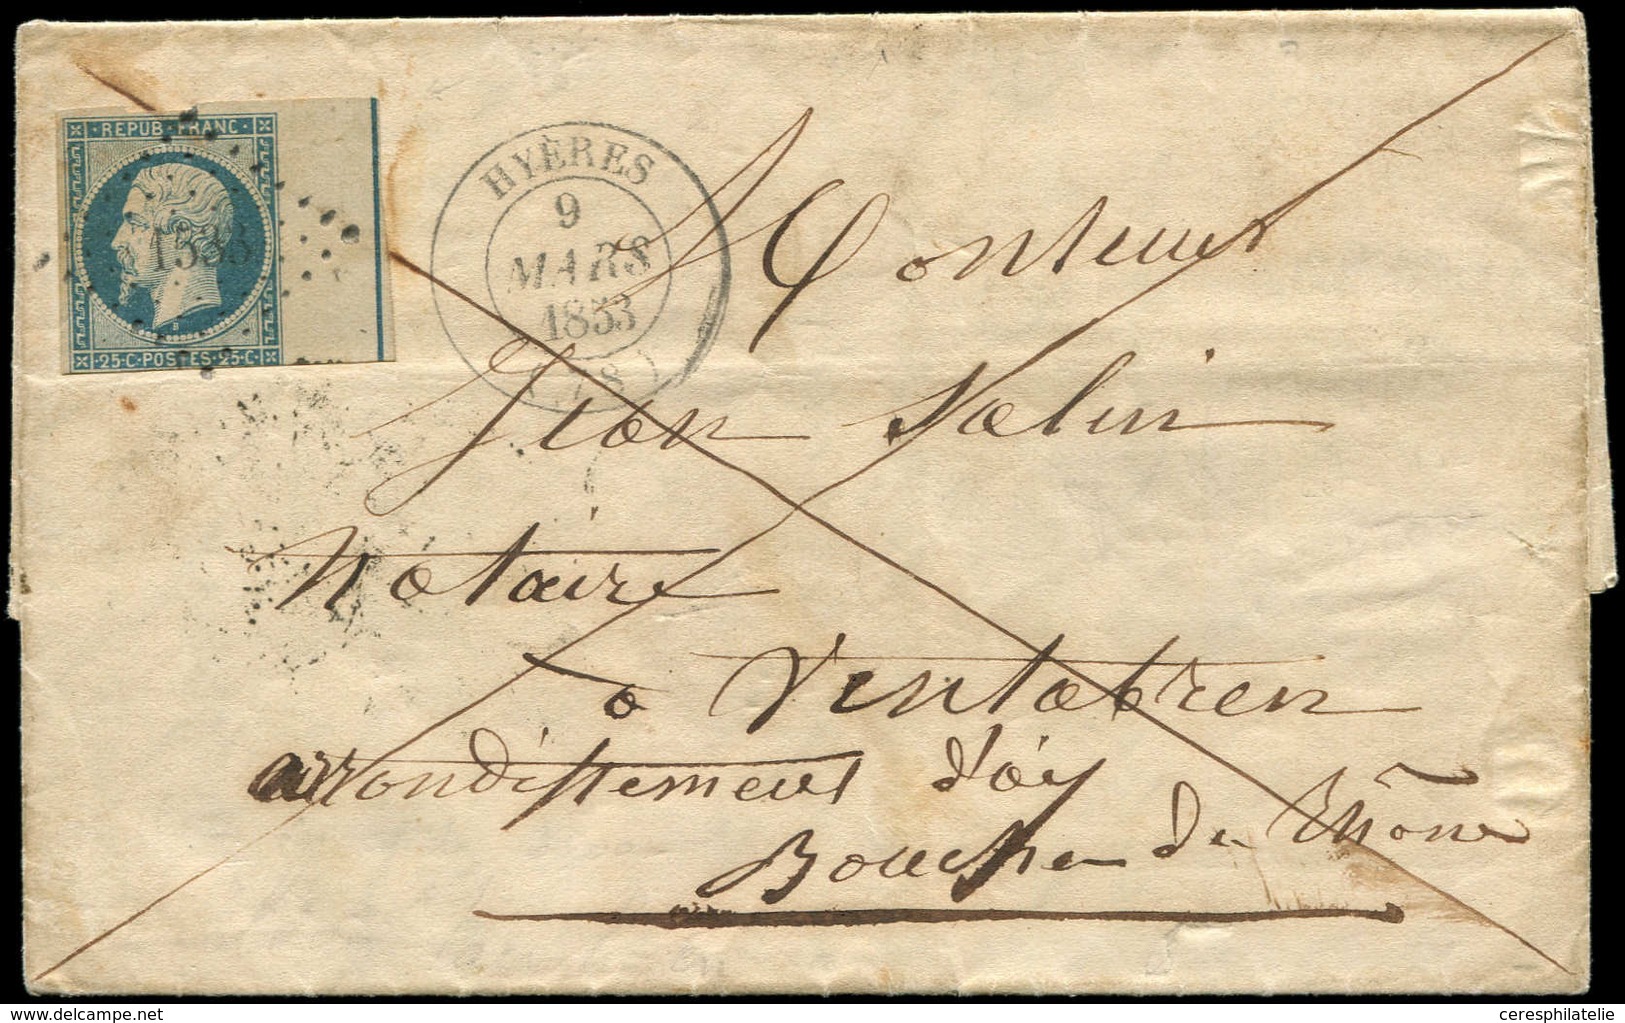 REPUB·FRANC·
1533
B
25·C·POSTES·25·C·
HYÈRES
9
MARS
1853
(78)
Monsieur
Jean Salin
Notaire
à Ventabren
arrondissement d'aix
Bouches du Rhône
delcampe.net
ceresphilatelie